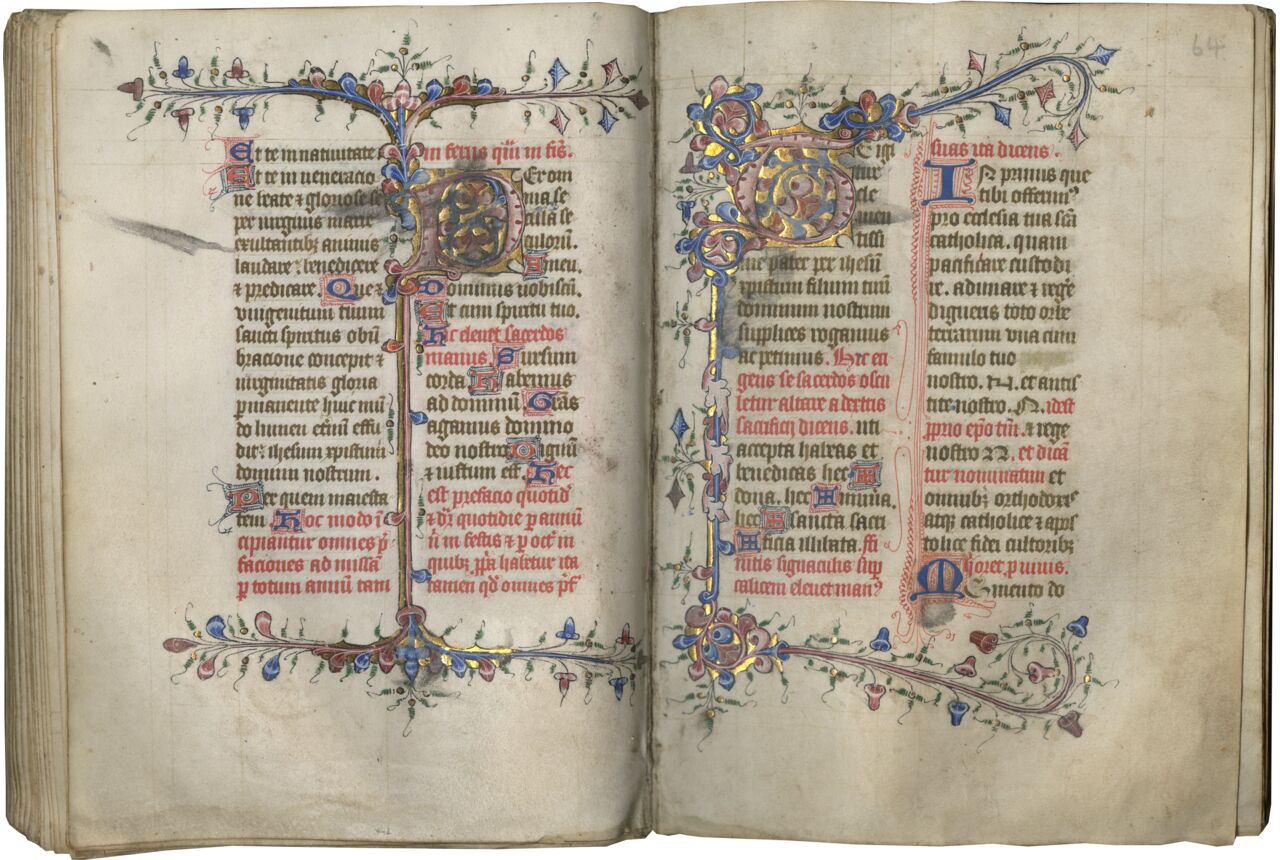 Et te in natiuitate
Et te in ueneracio
ne beate & gloriose se
per uirginis marie
exultantibꝫ animis
laudare. benedicere
& predicare. Que &
vnigenitum tuum
sancti spiritus obū
bracione concepit &
uirginitatis gloria
ꝑmanente huic mū
do lumen et̄nū effu
dit ihesum xpistum
dominum nostrum.
Per quem maiesta
tem. Hoc modo
cipiantur omnes p̄
faciones ad missā
ꝑ totum annum tam
in feriis qͣm in fis̄.
Er om
nia se
cula se
culorū.
Amen.
Dominus uobiscū.
Et cum spiritu tuo.
Hic eleuet sacerdos
manus. Sursum
corda. Habemus
ad dominū. Gras̄
agamus domino
deo nostro. Dignū
& iustum est. Hec
est prefacio quotid̓
& dr̄ quotidie ꝑ annū
ꝑ oct̓
quibꝫ ꝓͥa habetur ita
tamen qd̓ omnes p̄f
64
E igi
tur
cle
men
tissi
me pater per ihesū
xpistum filium tuū
dominum nostrum
supplices rogamus
ac petimus. Hic eri
gens se sacerdos oscu
letur altare a dextris
sacrificii dicens. uti
accepta habeas et
benedicas hec
dona. hec munera.
hec sancta sacri
ficia illibata. ffi
nitis signaculis sup̱
calicem eleuet man⁹
suas ita dicens.
IN primis que
tibi offerim⁹
pro ecclesia tua scā
catholica. quam
pacificare custodi
re. adunare & rege̓
digneris toto orbe
terrarum vna cum
famulo tuo
nostro. N. et antis
tite nostro. N. idest
ꝓprio epō tm̄. & rege
nostro N. et dicū
tur nominatim et
omnibꝫ orthodoxis
atqꝫ catholice & apos
tolice fidei cultoribꝫ
Hic oret ꝓ uiuis.
Memento do